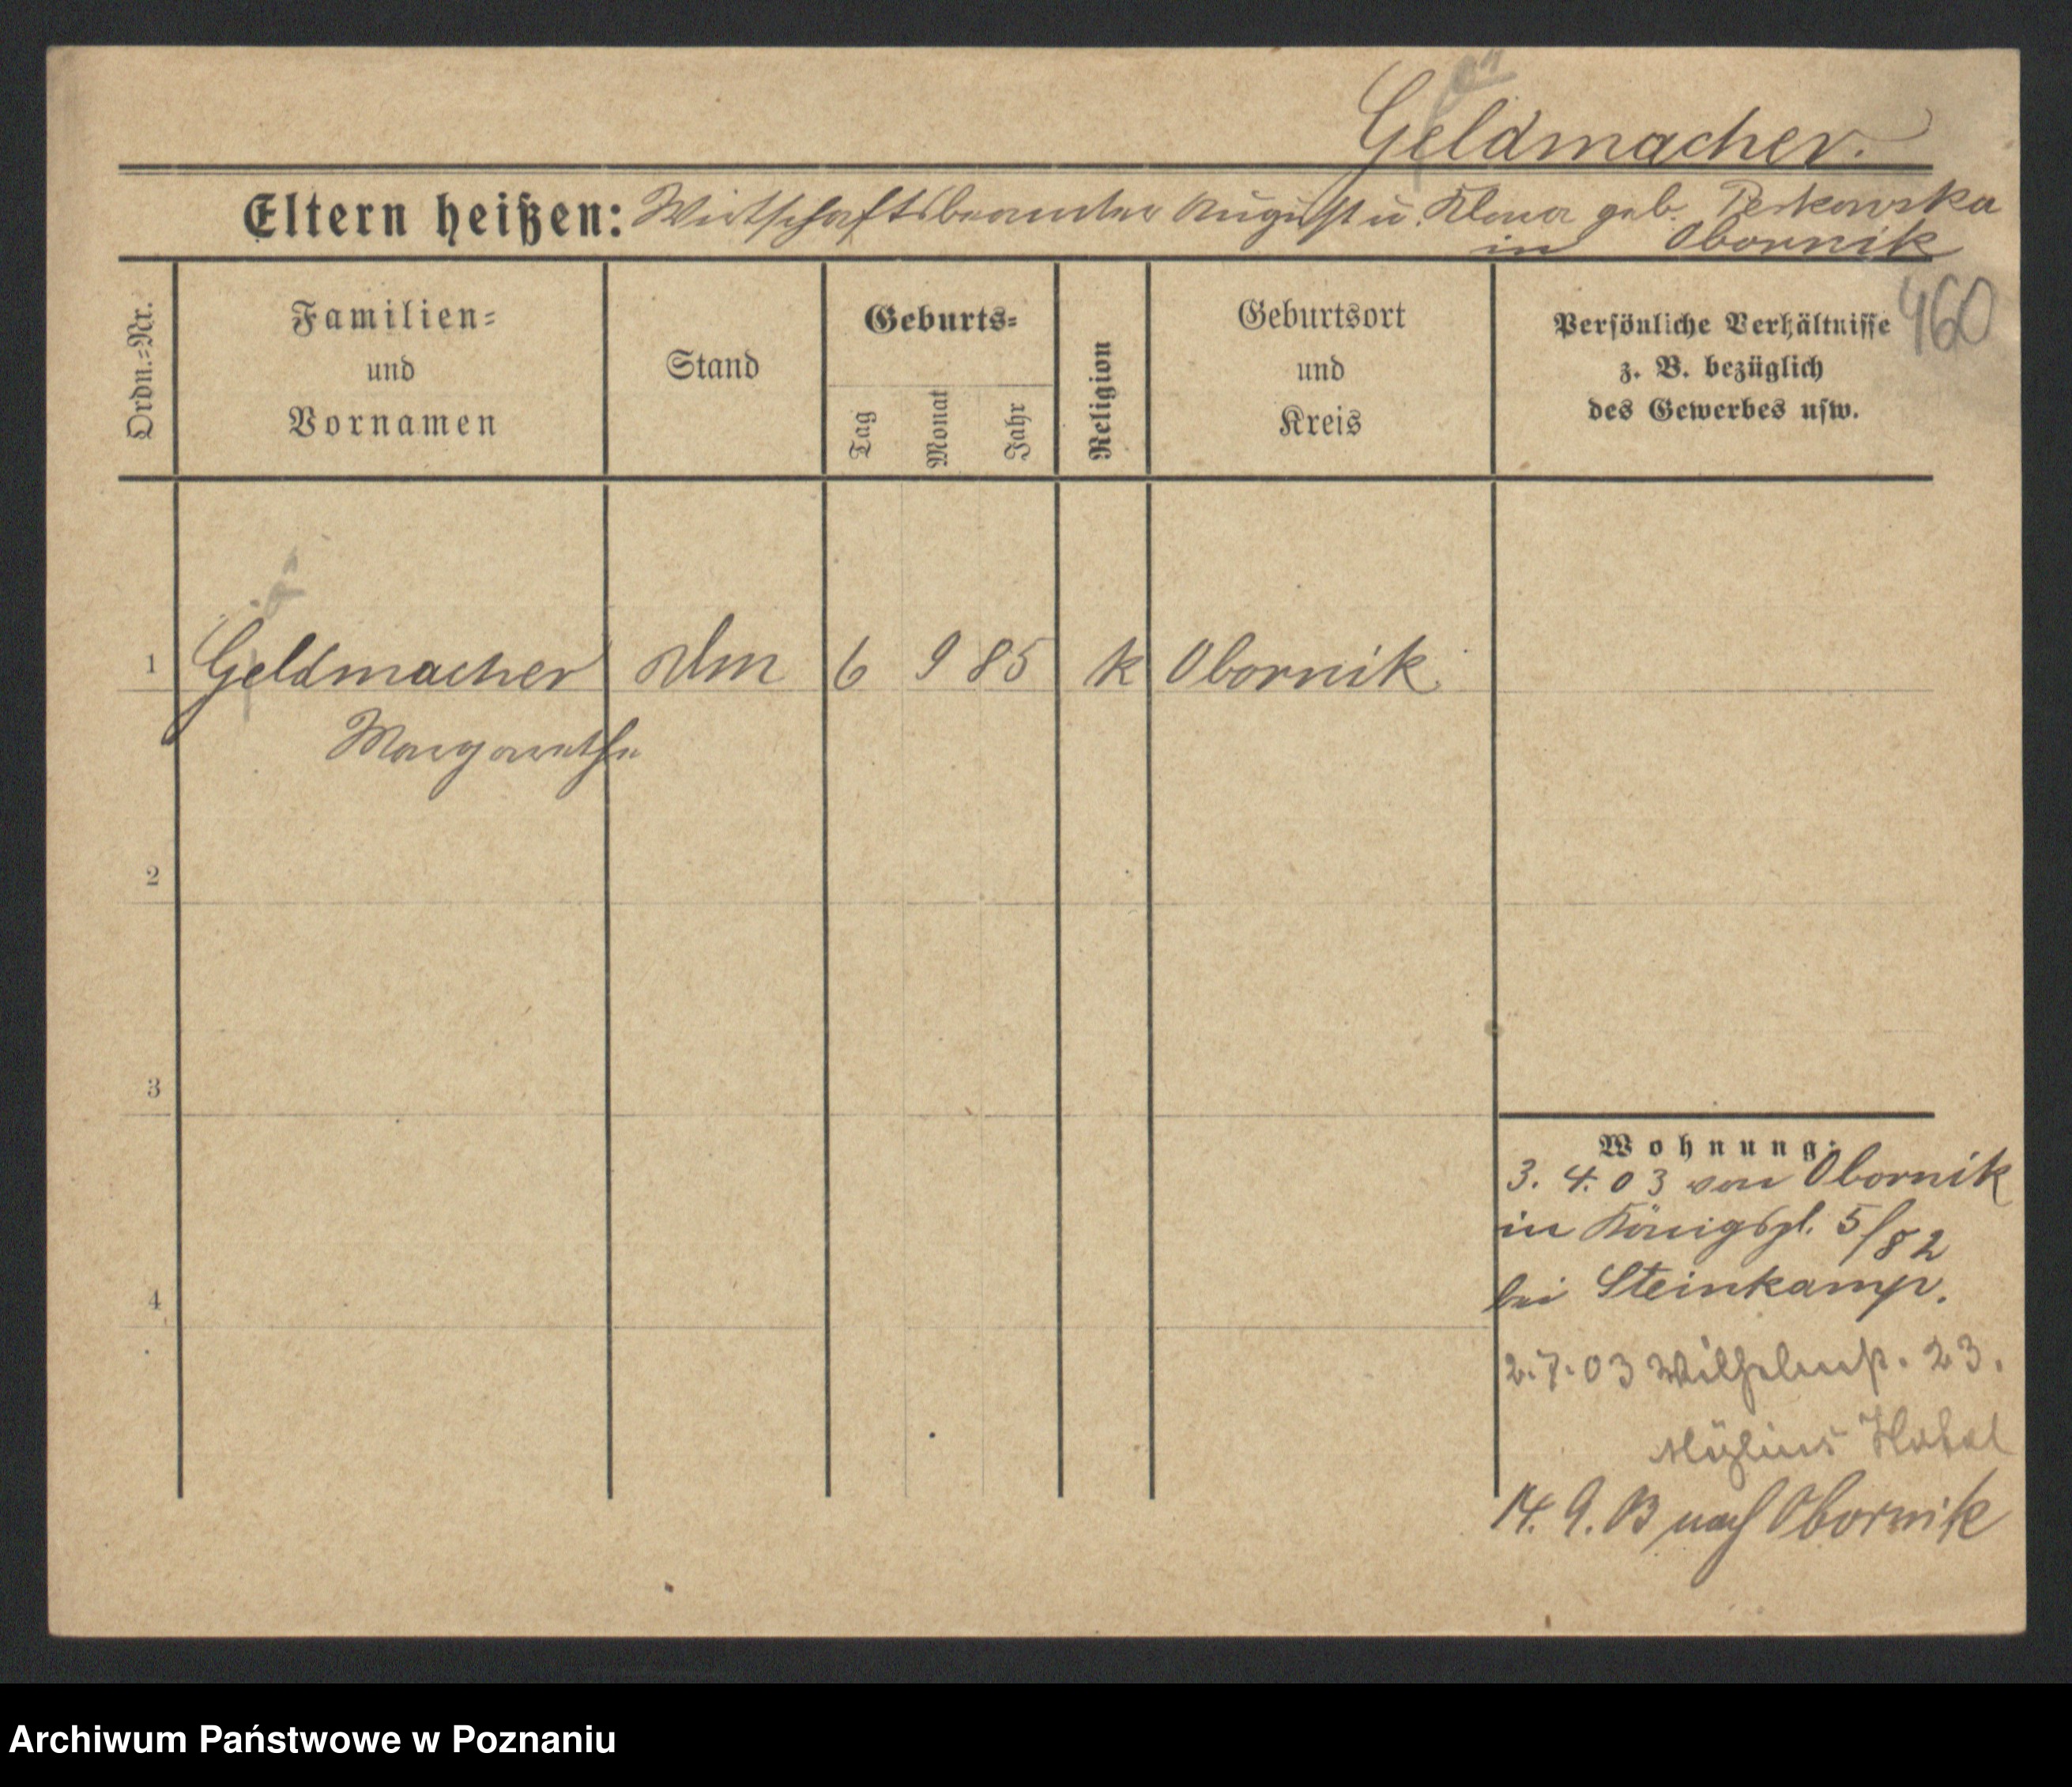 Geldmacher.
Eltern heißen: Wirtschaftsbeamter August u. Klara geb. Perkowska
in Obornik
460
Ordn.=Nr.
Familien=
und
Vornamen
Stand
Geburts=
Tag
Monat
Jahr
Religion
Geburtsort
und
Kreis
Persönliche Verhältnisse
z. B. bezüglich
des Gewerbes usw.
1 Geldmacher 6 9 85 k Obornik
Margarethe
2
3
4
Wohnung:
3. 4. 03 von Obornik
in Königspl. 5/82
bei Steinkamp.
2. 7. 03 Wilhelmst. 23.
Mylius Hotel
14. 9. 03 nach Obornik
Archiwum Państwowe w Poznaniu